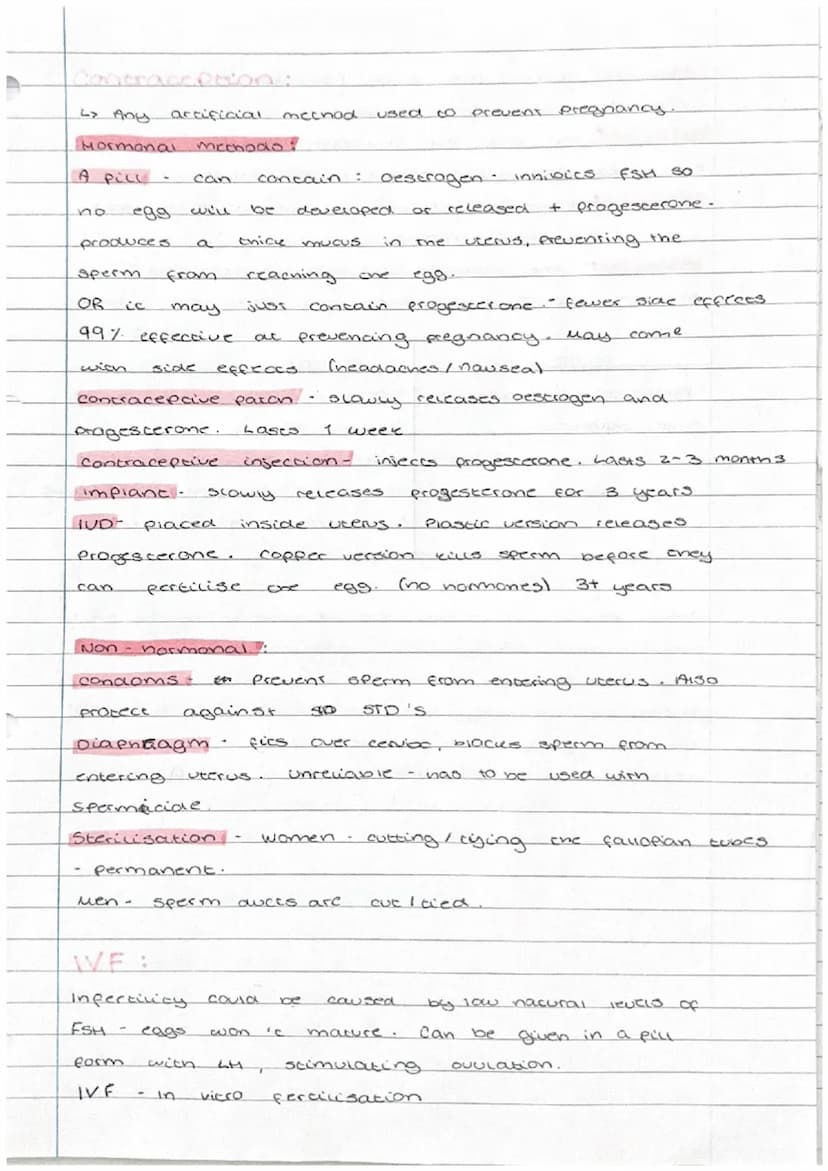 Contraception :
↳ Any artificial method used to prevent pregnancy.
Hormonal methods :
A pill - can contain : oestrogen - inhibits FSH so
no egg will be developed or released + progesterone -
produces a thick mucus in the uterus, preventing the
sperm from reaching the egg.
OR it may just contain progesterone - fewer side effects
99% effective at preventing pregnancy. May come
with side effects (headaches / nausea)
contraceptive patch - slowly releases oestrogen and
progesterone. Lasts 1 week
contraceptive injection - injects progesterone. Lasts 2-3 months
implant - slowly releases progesterone for 3 years
IUD - placed inside uterus. Plastic version releases
progesterone. Copper version kills sperm before they
can fertilise the egg. (no hormones) 3+ years
Non - hormonal :
condoms - prevent sperm from entering uterus. Also
protect against STD's
Diaphragm - fits over cervix, blocks sperm from
entering uterus. Unreliable - has to be used with
spermicide.
Sterilisation - women - cutting / tying the fallopian tubes
- permanent.
Men - sperm ducts are cut / tied.
IVF :
Infertility could be caused by low natural levels of
FSH - eggs won't mature. Can be given in a pill
form with LH, stimulating ovulation.
IVF - in vitro fertilisation